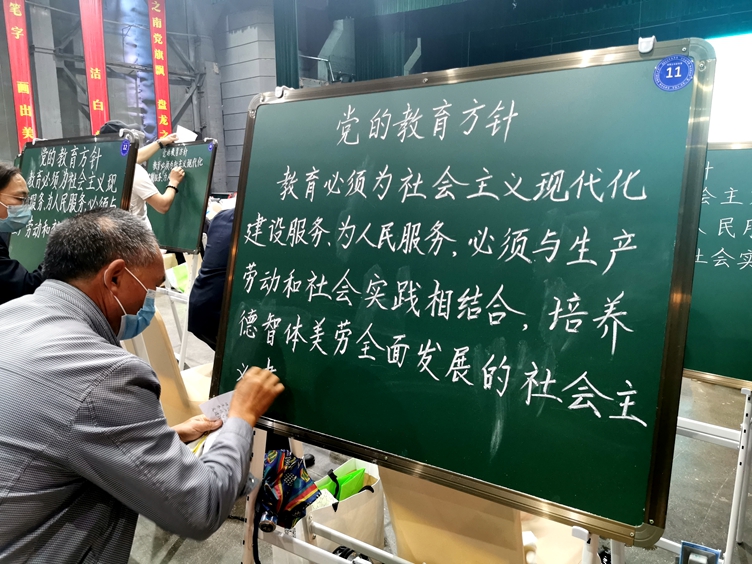 笔字 画出美
洁白
之南党旗飘 盘龙之
党的教育方针
教育必须为社会主义现
服务、为人民服务,必须与
劳动和社
党的教育方针
教育必须为社会主义现代化
11
党的教育方针
教育必须为社会主义现代化
建设服务、为人民服务，必须与生产
劳动和社会实践相结合，培养
德智体美劳全面发展的社会主
义
针
社会主
人民
社会实